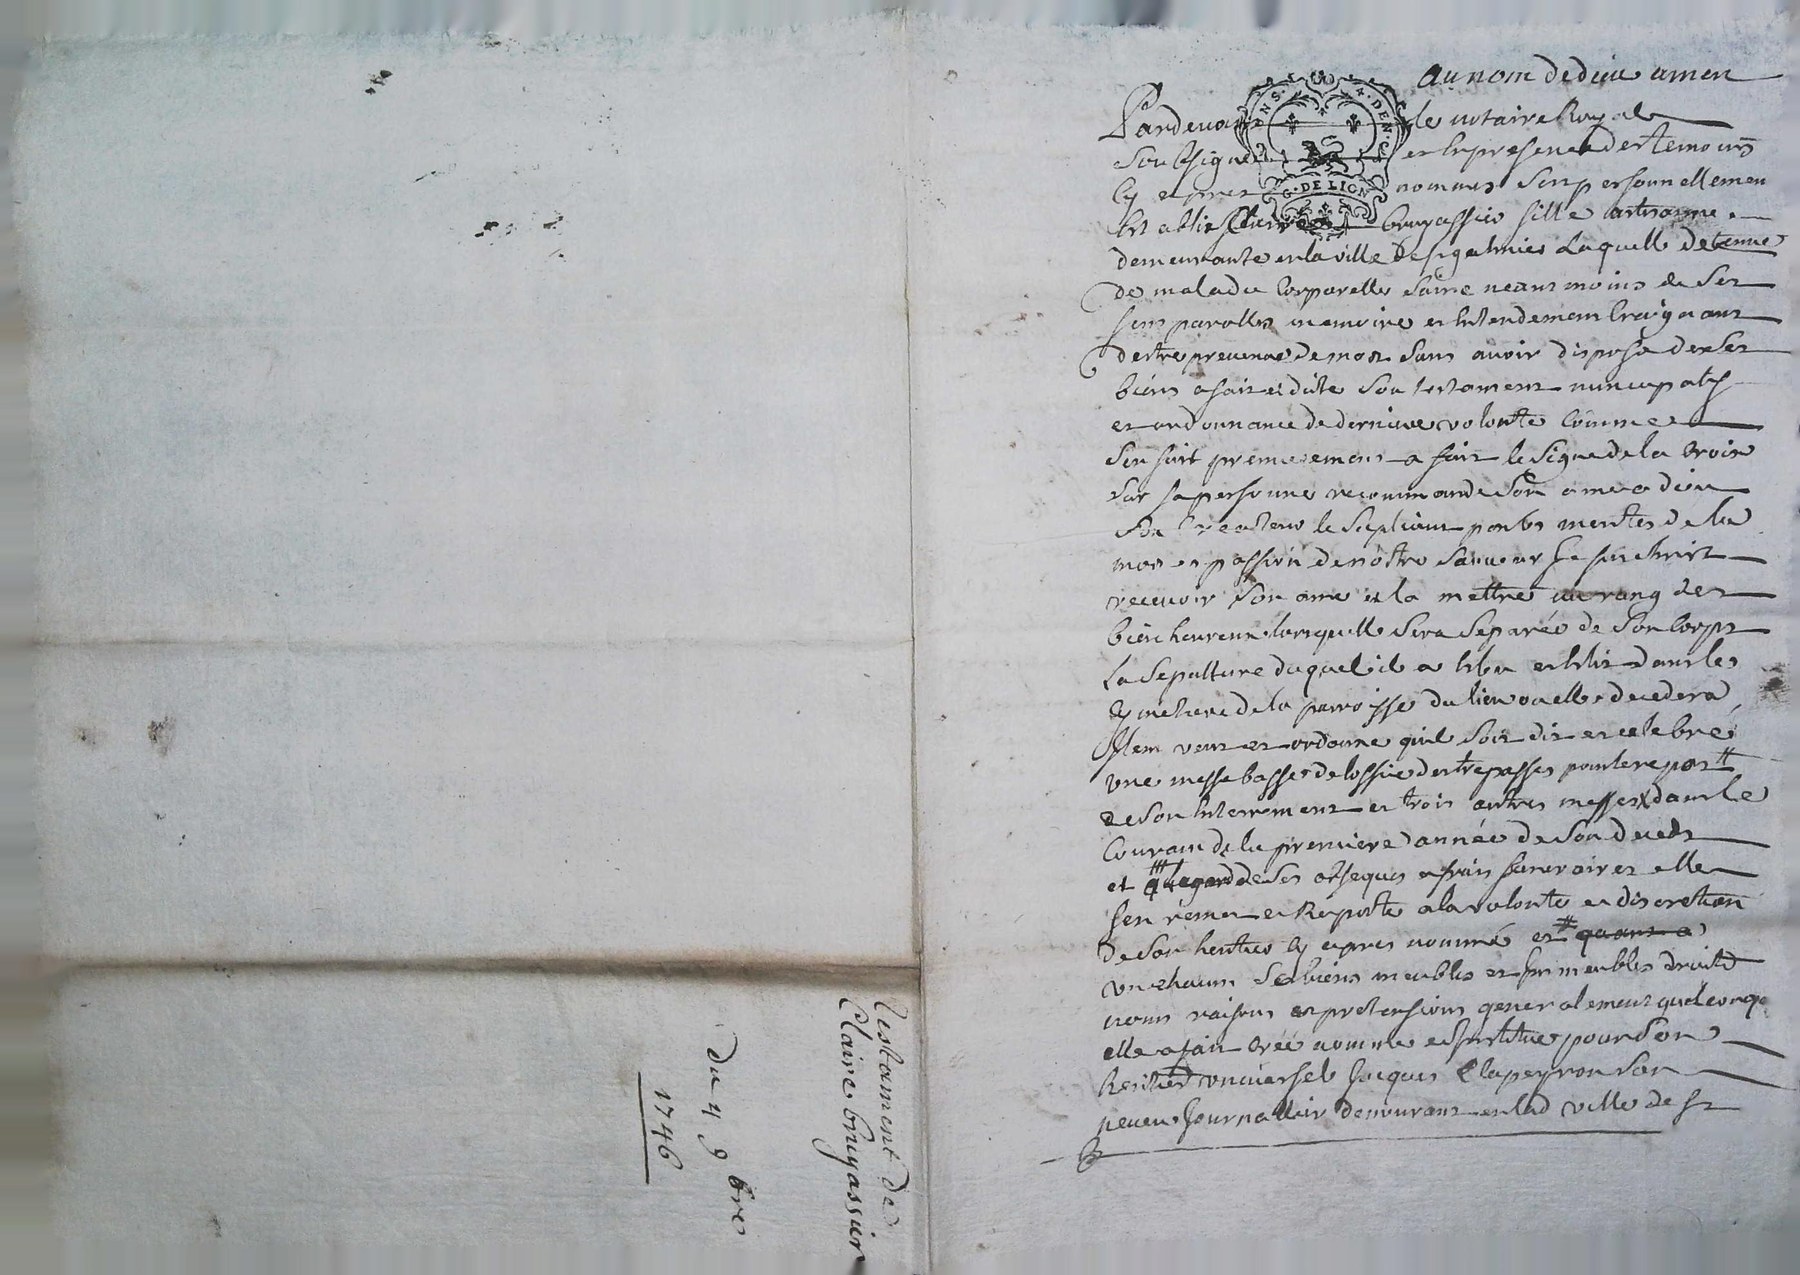 au nom de dieu amen
Pardevant le notaire Royal
Soubsigné et en presence des temoins
Cy apres nommés Sest personnellement
Establie Claire bruyassier fille artisanne
demeurante en la ville de st galmier Laquelle detenue
de maladie Corporelle Saine neantmoins de Ses
sens parolles memoire et Entendement Craignant
destre prevenue de mort Sans avoir disposé de Ses
biens a fait et dicté Son testament nuncupatif
et ordonnance de derniere volonté Comme
Sensuit premierement a fait le Signe de la Croix
Sur sa personne recommandé Son ame a dieu
Son Createur le Supliant par les merites de la
mort et passion de nôtre Sauveur Jesus christ
recevoir Son ame et la mettre au rang des
bienheureux lorsquelle Sera Separée de Son Corps
La Sepulture duquel a Elu et Elit dans le
Cymetiere de la parroisse du lieu ou elle decedera
Item veut et ordonne quil Soit dit et celebré
une messe basse de loffice des trepassés pour le repos #
de Son Enterrement et trois autres messes dans le
Courant de la premiere année de Son deceds
et a legard de Ses obseques et frais funeraires elle
Sen remet et Raporte a la volonté et discretion
de Son heritier Cy apres nommé et # quant a
un chacun Ses biens meubles et Immeubles droits
noms raisons et pretensions generalement quelconqe
elle a fait Créé nommé et Institué pour Son
heritier universel Jacques Clapeyron Son
neveu Journallier demeurant en lad ville de st
Testament de
Claire bruyassier
du 4 9bre
1746
NS · DEN ·
G · DE LION